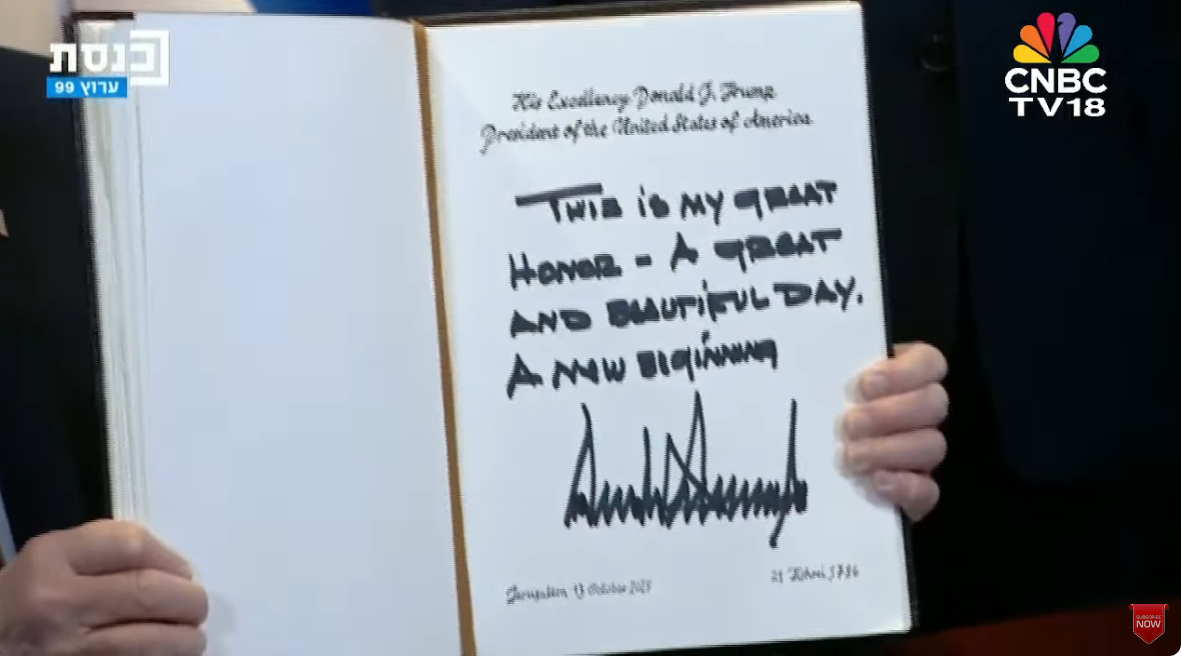 כנסת
ערוץ 99
CNBC
TV18
His Excellency Donald J. Trump
President of the United States of America
THIS IS MY GREAT
HONOR - A GREAT
AND BEAUTIFUL DAY.
A NEW BEGINNING
Jerusalem, 13 October 2025
21 Tishrei 5786
SUBSCRIBE
NOW